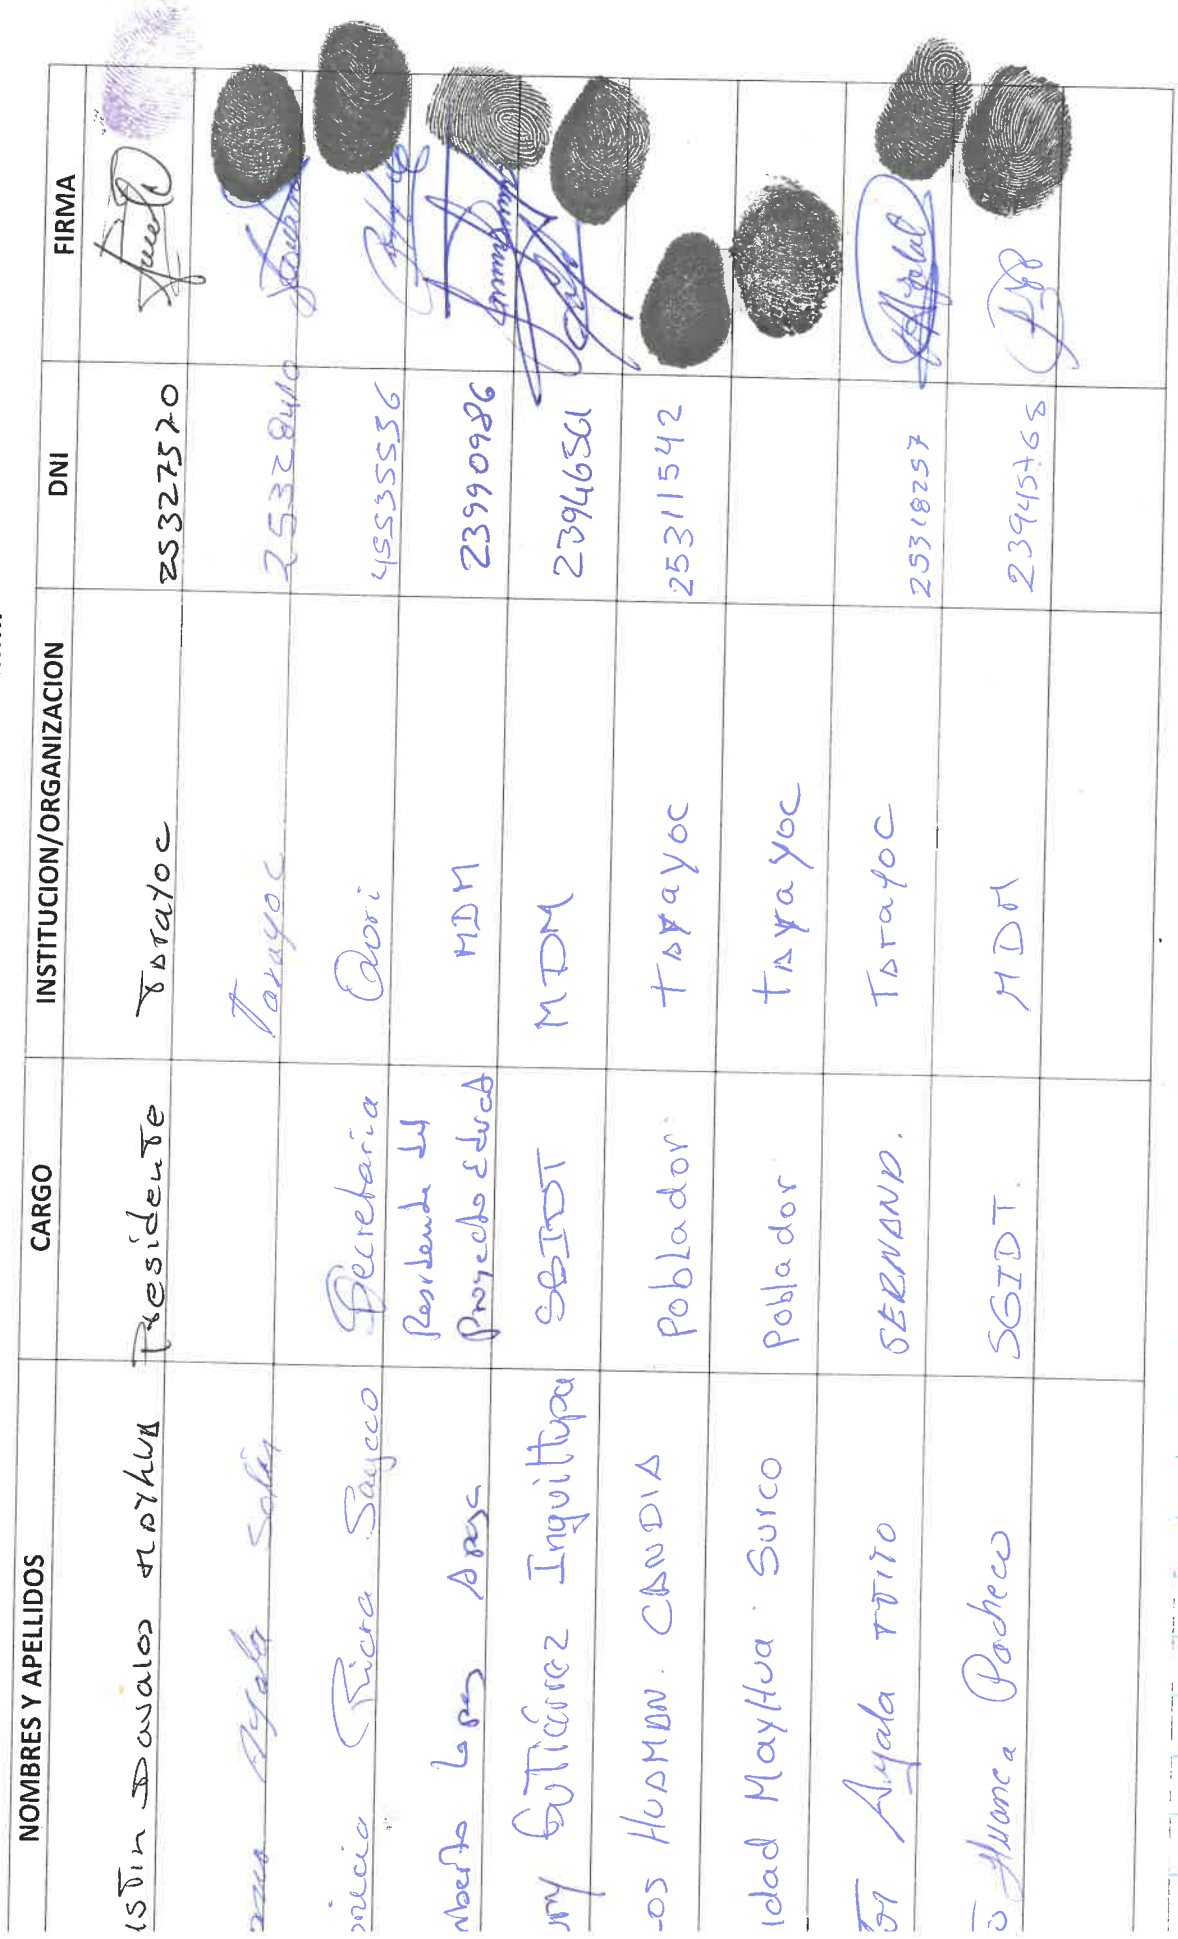 NOMBRES Y APELLIDOS CARGO INSTITUCION/ORGANIZACION DNI FIRMA
Davalos Presidente Tarayoc 25327520
Ayala Tarayoc 25328410
Riera Saycco Secretaria Qori 45535536
Lopez Residente del
Proyecto Educa MDM 23990986
Gutiérrez Inquiltupa SGIDT MDM 23946561
HUAMAN. CANDIA Poblador tarayoc 25311542
MayHua Surco Poblador tarayoc
Ayala TTITO SERNANP. Tarayoc 25318257
Huanca Pacheco SGIDT. MDM 23945768